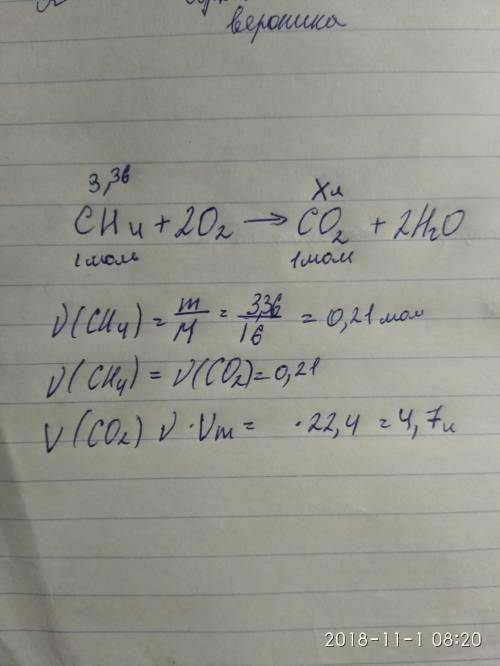 вероника
3,36 Xл
CH₄ + 2O₂ → CO₂ + 2H₂O
1 моль 1 мол
ν(CH₄) = m/M = 3,36/16 = 0,21 мол
ν(CH₄) = ν(CO₂) = 0,21
V(CO₂) ν · Vm = · 22,4 = 4,7 л
2018-11-1 08:20